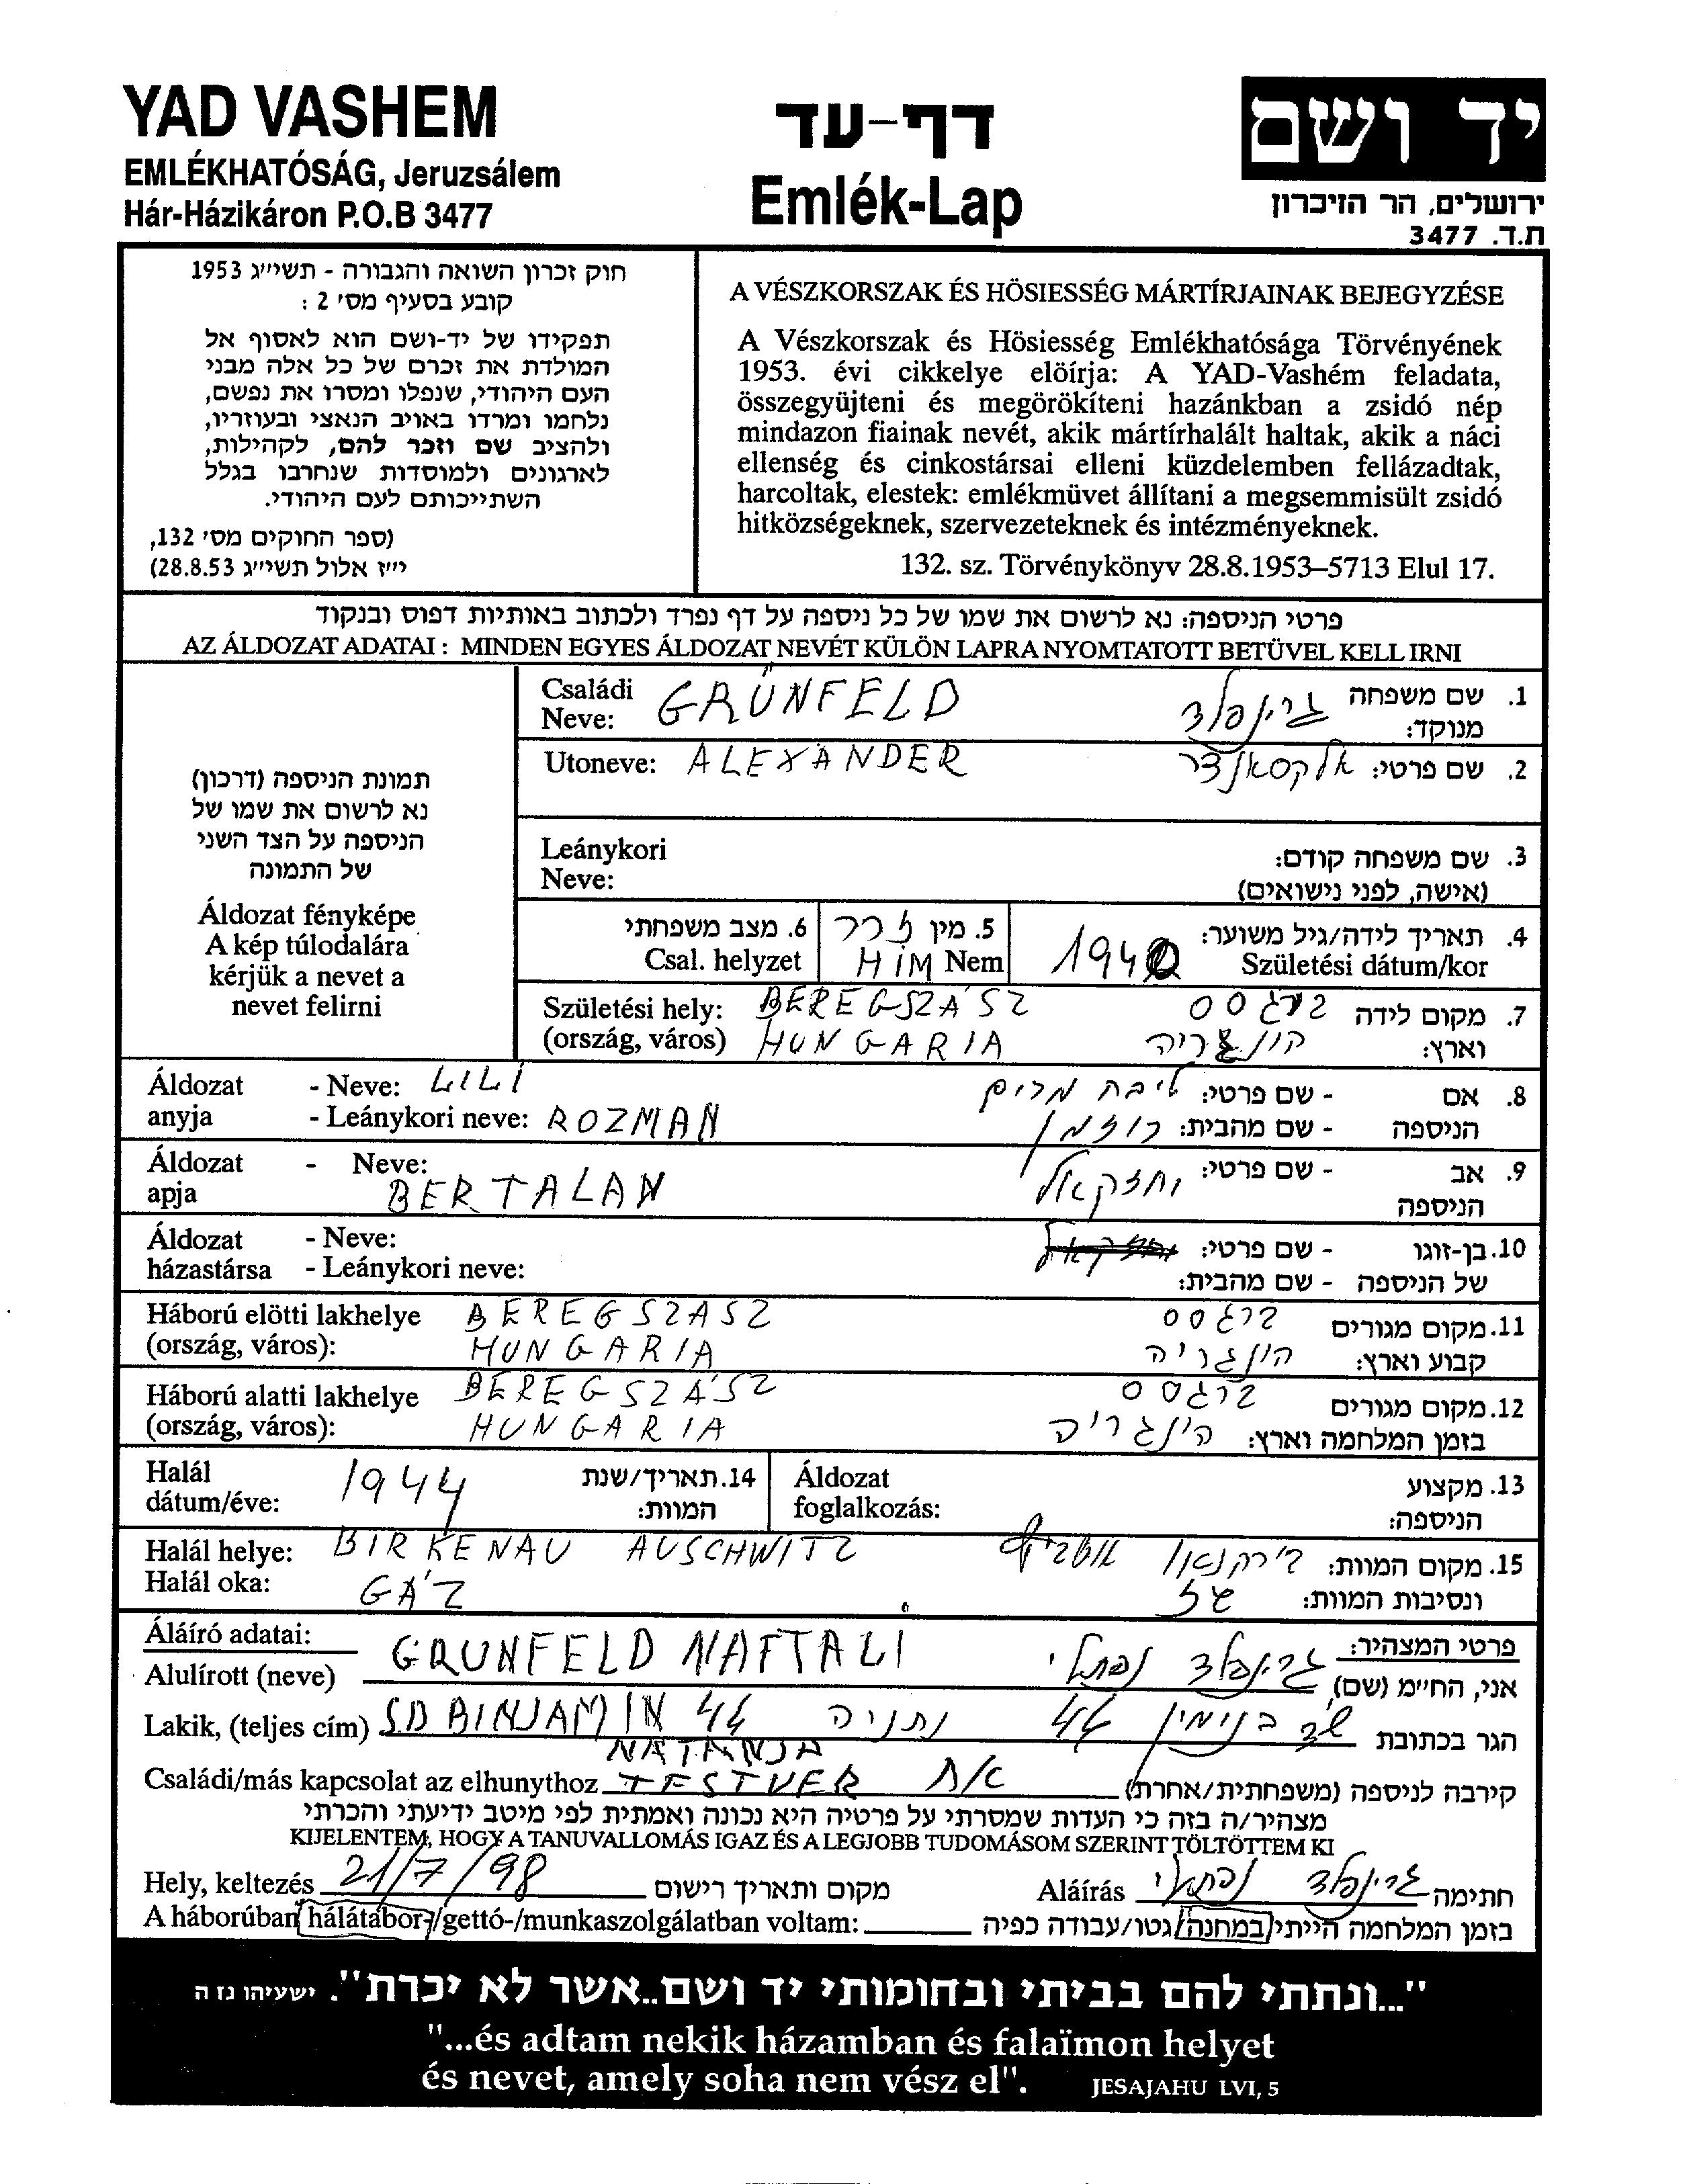 YAD VASHEM
EMLÉKHATÓSÁG, Jeruzsálem
Hár-Házikáron P.O.B 3477
דף-עד
Emlék-Lap
יד ושם
ירושלים, הר הזיכרון
ת.ד. 3477
חוק זכרון השואה והגבורה - תשי״ג 1953
קובע בסעיף מס׳ 2 :
תפקידו של יד-ושם הוא לאסוף אל
המולדת את זכרם של כל אלה מבני
העם היהודי, שנפלו ומסרו את נפשם,
נלחמו ומרדו באויב הנאצי ובעוזריו,
ולהציב שם וזכר להם, לקהילות,
לארגונים ולמוסדות שנחרבו בגלל
השתייכותם לעם היהודי.
(ספר החוקים מס׳ 132,
י״ז אלול תשי״ג 28.8.53)
A VÉSZKORSZAK ÉS HÖSIESSÉG MÁRTÍRJAINAK BEJEGYZÉSE
A Vészkorszak és Hösiesség Emlékhatósága Törvényének
1953. évi cikkelye elöírja: A YAD-Vashém feladata,
összegyüjteni és megörökíteni hazánkban a zsidó nép
mindazon fiainak nevét, akik mártírhalált haltak, akik a náci
ellenség és cinkostársai elleni küzdelemben fellázadtak,
harcoltak, elestek: emlékmüvet állítani a megsemmisült zsidó
hitközségeknek, szervezeteknek és intézményeknek.
132. sz. Törvénykönyv 28.8.1953–5713 Elul 17.
פרטי הניספה: נא לרשום את שמו של כל ניספה על דף נפרד ולכתוב באותיות דפוס ובנקוד
AZ ÁLDOZAT ADATAI : MINDEN EGYES ÁLDOZAT NEVÉT KÜLÖN LAPRA NYOMTATOTT BETÜVEL KELL IRNI
תמונת הניספה (דרכון)
נא לרשום את שמו של
הניספה על הצד השני
של התמונה
Áldozat fényképe
A kép túlodalára
kérjük a nevet a
nevet felirni
Családi Neve: GRÜNFELD גרינפלד 1. שם משפחה מנוקד:
Utoneve: ALEXANDER אלקסאנדר 2. שם פרטי:
Leánykori Neve: 3. שם משפחה קודם: (אישה, לפני נישואים)
6. מצב משפחתי Csal. helyzet
5. מין זכר HIM Nem
1940 4. תאריך לידה/גיל משוער: Születési dátum/kor
Születési hely: BEREGSZÁSZ ברגסס 7. מקום לידה
(ország, város) HUNGARIA הונגריה וארץ:
Áldozat - Neve: LILI ליבה מרים 8. אם - שם פרטי:
anyja - Leánykori neve: ROZMAN רוזמן הניספה - שם מהבית:
Áldozat - Neve: 9. אב - שם פרטי: יחזקאל
apja BERTALAN הניספה
Áldozat - Neve: 10. בן-זוגו - שם פרטי:
házastársa - Leánykori neve: של הניספה - שם מהבית:
Háború elötti lakhelye BEREGSZASZ ברגסס 11. מקום מגורים
(ország, város): HUNGARIA הונגריה קבוע וארץ:
Háború alatti lakhelye BEREGSZÁSZ ברגסס 12. מקום מגורים
(ország, város): HUNGARIA הונגריה בזמן המלחמה וארץ:
Halál dátum/éve: 1944 14. תאריך/שנת המוות:
Áldozat foglalkozás: 13. מקצוע הניספה:
Halál helye: BIRKENAU AUSCHWITZ בירקנאו 15. מקום המוות:
Halál oka: GÁZ גז ונסיבות המוות:
Áláíró adatai: פרטי המצהיר:
Alulírott (neve) GRUNFELD NAFTALI גרינפלד נפתלי אני, החי״מ (שם)
Lakik, (teljes cím) SD BINJAMIN 44 שד בנימין 44 נתניה הגר בכתובת
NATANJA
Családi/más kapcsolat az elhunythoz TESTVER אח קירבה לניספה (משפחתית/אחרת)
מצהיר/ה בזה כי העדות שמסרתי על פרטיה היא נכונה ואמתית לפי מיטב ידיעתי והכרתי
KIJELENTEM, HOGY A TANUVALLOMÁS IGAZ ÉS A LEGJOBB TUDOMÁSOM SZERINT TÖLTÖTTEM KI
Hely, keltezés 21/7/98 מקום ותאריך רישום Aláírás גרינפלד נפתלי חתימה
A háborúban hálátábor-/gettó-/munkaszolgálatban voltam: בזמן המלחמה הייתי במחנה/גטו/עבודה כפיה
"...ונתתי להם בביתי ובחומותי יד ושם..אשר לא יכרת". ישעיהו נז ה
"...és adtam nekik házamban és falaïmon helyet
és nevet, amely soha nem vész el". JESAJAHU LVI, 5